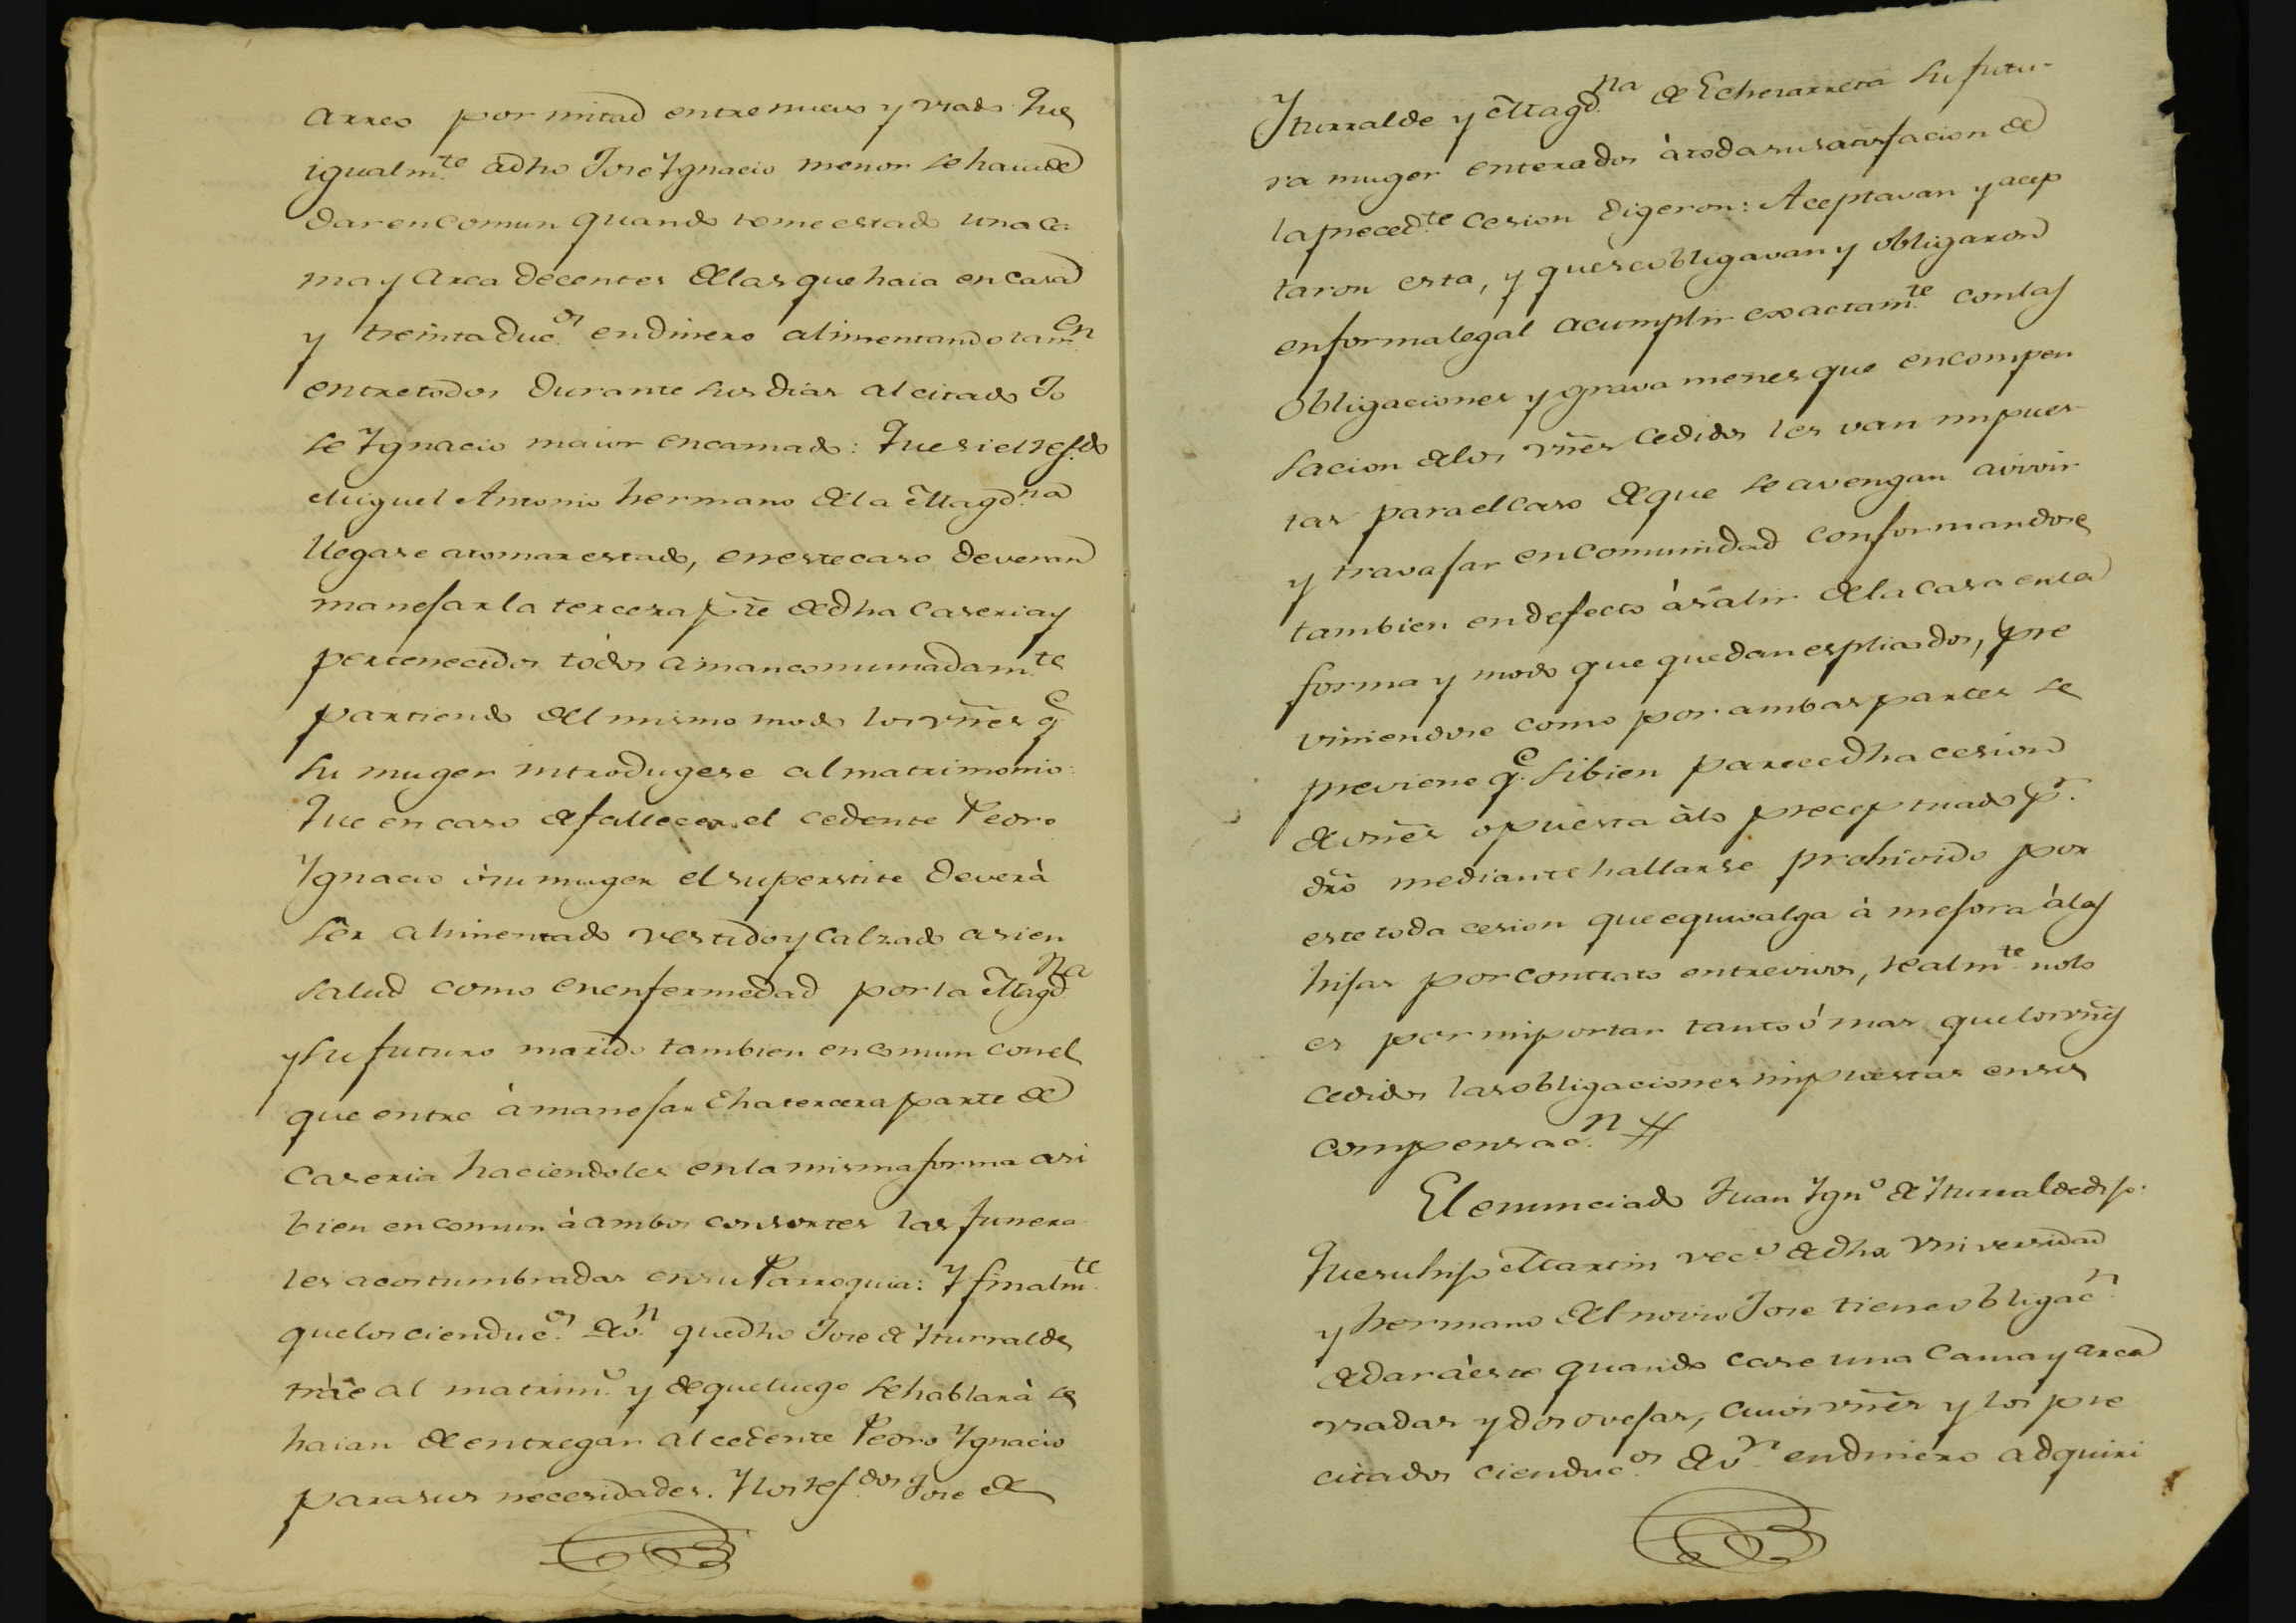 arreo por mitad entre nuevo y usado. Que
igualm.te a dho Jose Ygnacio menor se haia de
dar en comun quando tome estado una ca
ma y arca decentes de las que haia en casa
y treinta duc.os en dinero alimentando tam.en
entre todos durante sus dias al citado Jo
se Ygnacio maior encamado: Que si el ref.do
Miguel Antonio hermano de la Magd.na
llegase a tomar estado, en este caso deveran
manejar la tercera pte de dha Caseria y
pertenecidos todos amancomunadam.te
partiendo del mismo modo los vñes q.e
su muger introdugese al matrimonio:
Que en caso de fallecer el cedente Pedro
Ygnacio ó su muger el superstite deverà
ser alimentado vestido y calzado asi en
salud como en enfermedad por la Magd.na
y su futuro marido tambien en comun con el
que entre à manejar dha tercera parte de
Caseria haciendoles en la misma forma asi
bien en comun à ambos consortes las funera
les acostumbradas en su Parroquia: Y finalm.te
que los cien duc.os de v.n que dho Jose de Yturralde
tràe al matrim.o y de que luego se hablarà se
haian de entregar al cedente Pedro Ygnacio
para sus necesidades. Y los ref.dos Jose de
Yturralde y Magd.na de Echevarreta su futu-
ra muger enterados à toda su satisfacion de
la preced.te cesion digeron: Aceptavan y acep
taron esta, y que se obligavan y obligaron
en forma legal a cumplir exactam.te con las
obligaciones y gravamenes que en compen
sacion de los vñes cedidos les van impues-
tas para el caso de que se avengan a vivir
y travajar en comunidad conformandose
tambien en defecto à salir de la casa en la
forma y modo que quedan espliados, pre
viniendose como por ambas partes se
previene q.e si bien parece dha cesion
de vñes opuesta à lo preceptuado p.r
dro mediante hallarse prohivido por
este toda cesion que equivalga à mejora à las
hijas por contrato entre vivos, realm.te no lo
es por importar tanto ó mas que los vñes
cedidos las obligaciones impuestas en su
compensac.n #
El enunciado Juan Ygn.o de Yturralde dijo:
Que su hijo Martin vec.o de dha Vniversidad
y hermano del novio Jose tiene obligac.n
de dar à este quando case una Cama y arca
usadas y dos ovejas, cuios vñes y los pre
citados cien duc.os de v.n en dinero adquiri